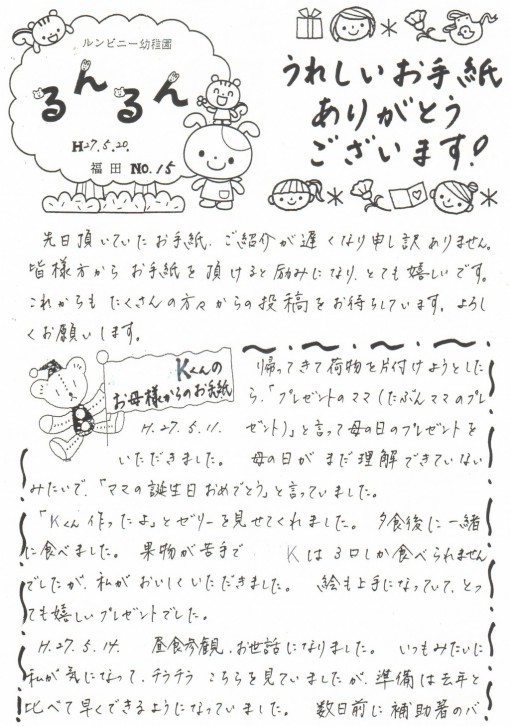 ルンビニー幼稚園
るんるん
H27.5.20.
福田 NO.15
うれしいお手紙
ありがとう
ございます!
先日頂いていたお手紙、ご紹介が遅くなり申し訳ありません。
皆様方からお手紙を頂けると励みになり、とても嬉しいです。
これからもたくさんの方々からの投稿をお待ちしています。よろし
くお願いします。
Kくんの
お母様からのお手紙
H.27.5.11. 帰ってきて荷物を片付けようとした
ら、「プレゼントのママ(たぶんママのプレ
ゼント)」と言って母の日のプレゼントを
いただきました。 母の日がまだ理解できていない
みたいで、「ママの誕生日おめでとう」と言っていました。
「Kくん作ったよ」とゼリーを見せてくれました。 夕食後に一緒
に食べました。 果物が苦手で Kは3口しか食べられません
でしたが、私がおいしくいただきました。 絵も上手になっていて、とっ
ても嬉しいプレゼントでした。
H.27.5.14. 昼食参観、お世話になりました。 いつもみたいに
私が気になって、チラチラこちらを見ていましたが、準備は去年と
比べて早くできるようになっていました。 数日前に補助箸のバ